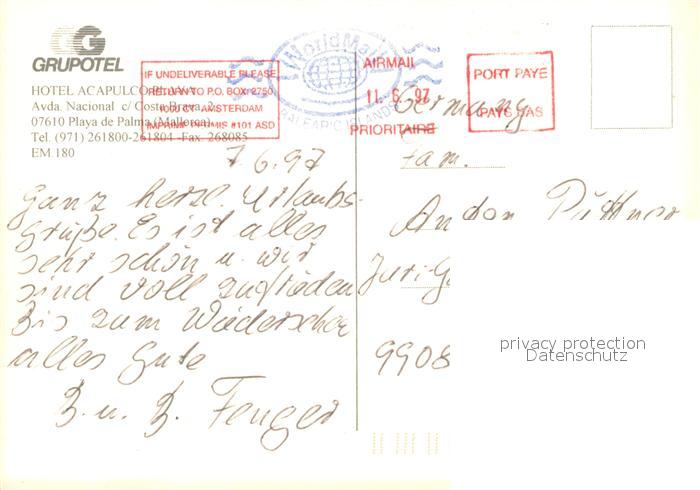 GRUPOTEL
HOTEL ACAPULCO PLAYA
Avda. Nacional c/ Costa Brava, 2
07610 Playa de Palma (Mallorca)
Tel. (971) 261800-261804 -Fax 268085
EM.180
IF UNDELIVERABLE PLEASE
RETURN TO P.O. BOX 2750
1000 CT AMSTERDAM
IMPRIME PERMIS #101 ASD
WorldMail
BALEARIC ISLANDS
AIRMAIL
11. 6. 97
PRIORITAIRE
PORT PAYE
PAYS BAS
7.6.97
Ganz herzl. Urlaubs-
grüße. Es ist alles
sehr schön u. wir
sind voll zufrieden
Bis zum Wiedersehen
alles Gute
B. u. B. Fenger
Germany
Fam.
Püttner
9908
privacy protection
Datenschutz